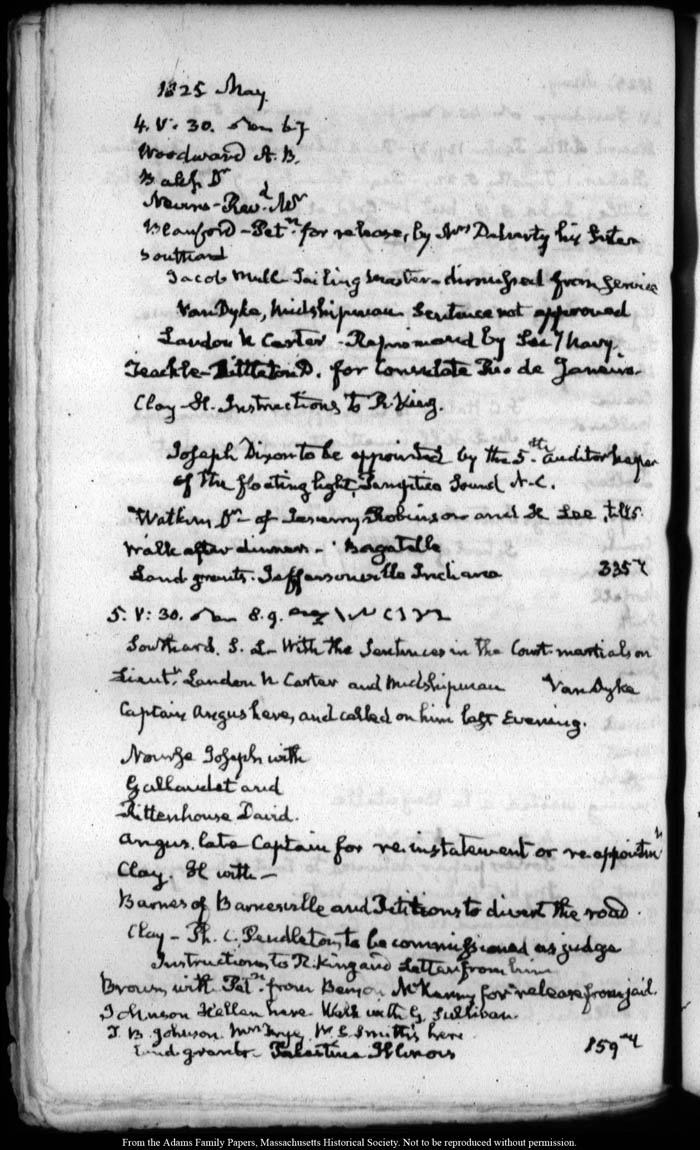 1825 May
4. V: 30.
Woodward A. B.
Balch Dr
Nevins - Revd. Mr
Blanford - Petn. for release, by Mrs Daharty his Sister
Southard
Jacob Mull Sailing Master - dismissed from Service
VanDyke, Midshipman Sentence not approved
Landon N Carter - Reprimand by Sec.y Navy.
Teackle - Littleton D. for Consulate Rio de Janeiro -
Clay - H. Instructions to R King.
Joseph Dixon to be appointed by the 5th. auditor keeper
of the floating light, Pamptico Sound N. C.
Watkins Dr - of Robinson and H Lee,
Walk after dinner -
Land grants. Jeffersonville Indiana 335
5. V: 30. 8. 9.
Southard. S. L. With the Sentences in the Court martials on
Lieutt. Landon N Carter and Midshipman VanDyke
Captain Angus here, and called on him last Evening.
Nourse Joseph with
Gallaudet and
Rittenhouse David.
Angus. late Captain for re instatement or re appointmt
Clay. H with -
Barnes of Barnesville and Petitions to divert the road.
Clay - Ph. C. Pendleton, to be commissioned as judge
Instructions to R. King and Letter from him
Brown, with Petn. from Benjn. McKenny for release from jail.
Johnson Hellen here Walk with G. Sullivan.
T. B. Johnson Mrs Frye, W. S. Smith's here
Land grants - Palestine Illinois 159
From the Adams Family Papers, Massachusetts Historical Society. Not to be reproduced without permission.